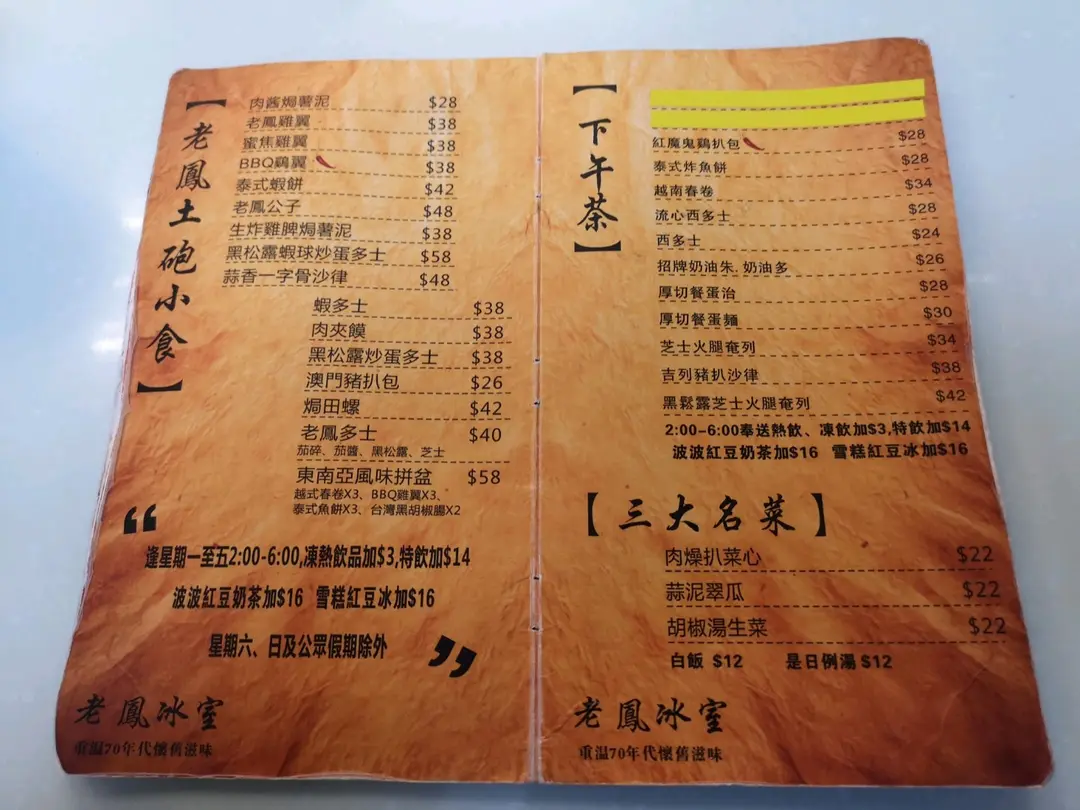 【老鳳土砲小食】
肉酱焗薯泥 $28
老鳳雞翼 $38
蜜焦雞翼 $38
BBQ鷄翼 $38
泰式蝦餅 $42
老鳳公子 $48
生炸雞脾焗薯泥 $38
黑松露蝦球炒蛋多士 $58
蒜香一字骨沙律 $48
蝦多士 $38
肉夾饃 $38
黑松露炒蛋多士 $38
澳門豬扒包 $26
焗田螺 $42
老鳳多士 $40
茄碎、茄醬、黑松露、芝士
東南亞風味拼盆 $58
越式春卷X3、BBQ雞翼X3、
泰式魚餅X3、台灣黑胡椒腸X2
“逢星期一至五2:00-6:00,凍熱飲品加$3,特飲加$14
波波紅豆奶茶加$16 雪糕紅豆冰加$16
星期六、日及公眾假期除外”
老鳳冰室
重温70年代懷舊滋味
【下午茶】
紅魔鬼鷄扒包 $28
泰式炸魚餅 $28
越南春卷 $34
流心西多士 $28
西多士 $24
招牌奶油朱.奶油多 $26
厚切餐蛋治 $28
厚切餐蛋麵 $30
芝士火腿奄列 $34
吉列豬扒沙律 $38
黑鬆露芝士火腿奄列 $42
2:00-6:00奉送熱飲、凍飲加$3,特飲加$14
波波紅豆奶茶加$16 雪糕紅豆冰加$16
【三大名菜】
肉燥扒菜心 $22
蒜泥翠瓜 $22
胡椒湯生菜 $22
白飯 $12 是日例湯 $12
老鳳冰室
重温70年代懷舊滋味